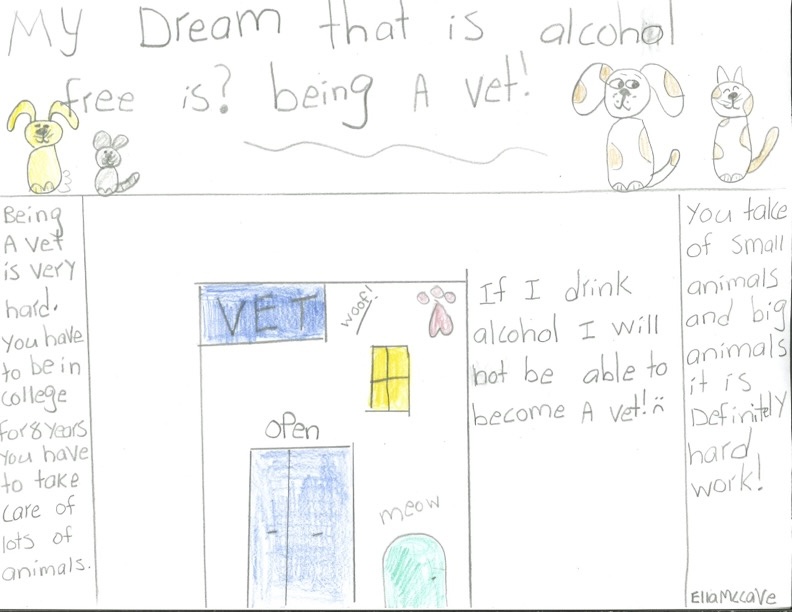 My Dream that is alcohol
free is? being A vet!
Being
A vet
is very
hard.
You have
to be in
college
for 8 Years
You have
to take
care of
lots of
animals.
VET
woof!
open
meow
If I drink
alcohol I will
not be able to
become A vet! :(
You take
of small
animals
and big
animals
it is
Definitly
hard
work!
Ella McCave